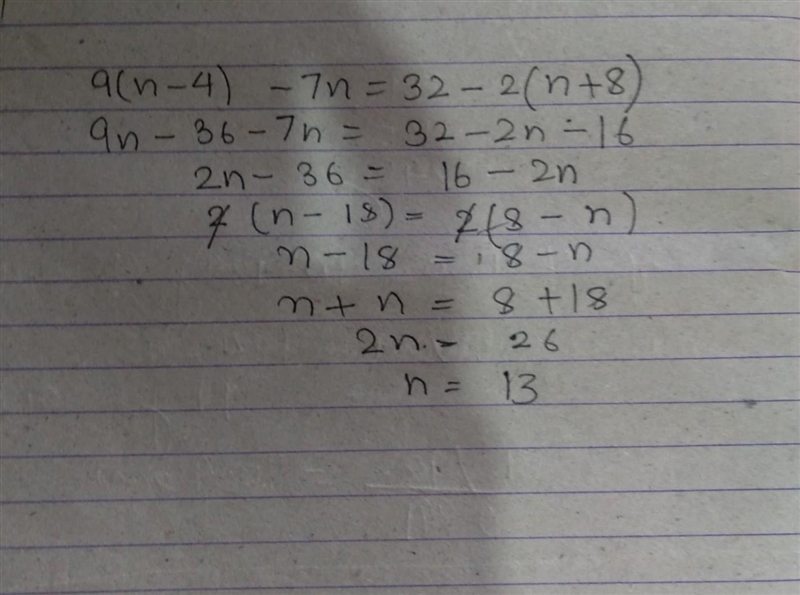 9(n-4) - 7n = 32 - 2(n+8)
9n - 36 - 7n = 32 - 2n - 16
2n - 36 = 16 - 2n
2(n - 18) = 2(8 - n)
n - 18 = 8 - n
n + n = 8 + 18
2n = 26
n = 13